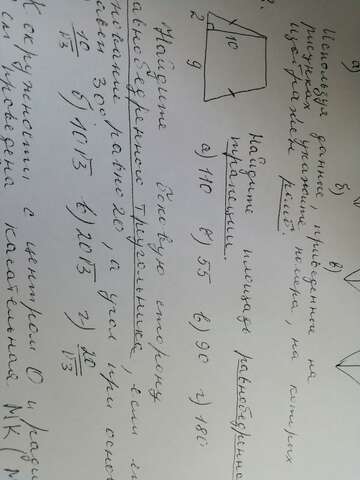 а)
б)
в)
Используя данные, приведенные на
рисунках, укажите номера, на которых
изображен ромб.
10
2
9
Найдите площадь равнобедренно
трапеции.
а) 110 б) 55 в) 90 г) 180
Найдите боковую сторону
авнобедренного треугольника, если
нование равно 20, а угол при осно
авен 30°
10/√3 б) 10√3 в) 20√3 г) 20/√3
К окружности с центром О и ради
см проведена касательная МК (М